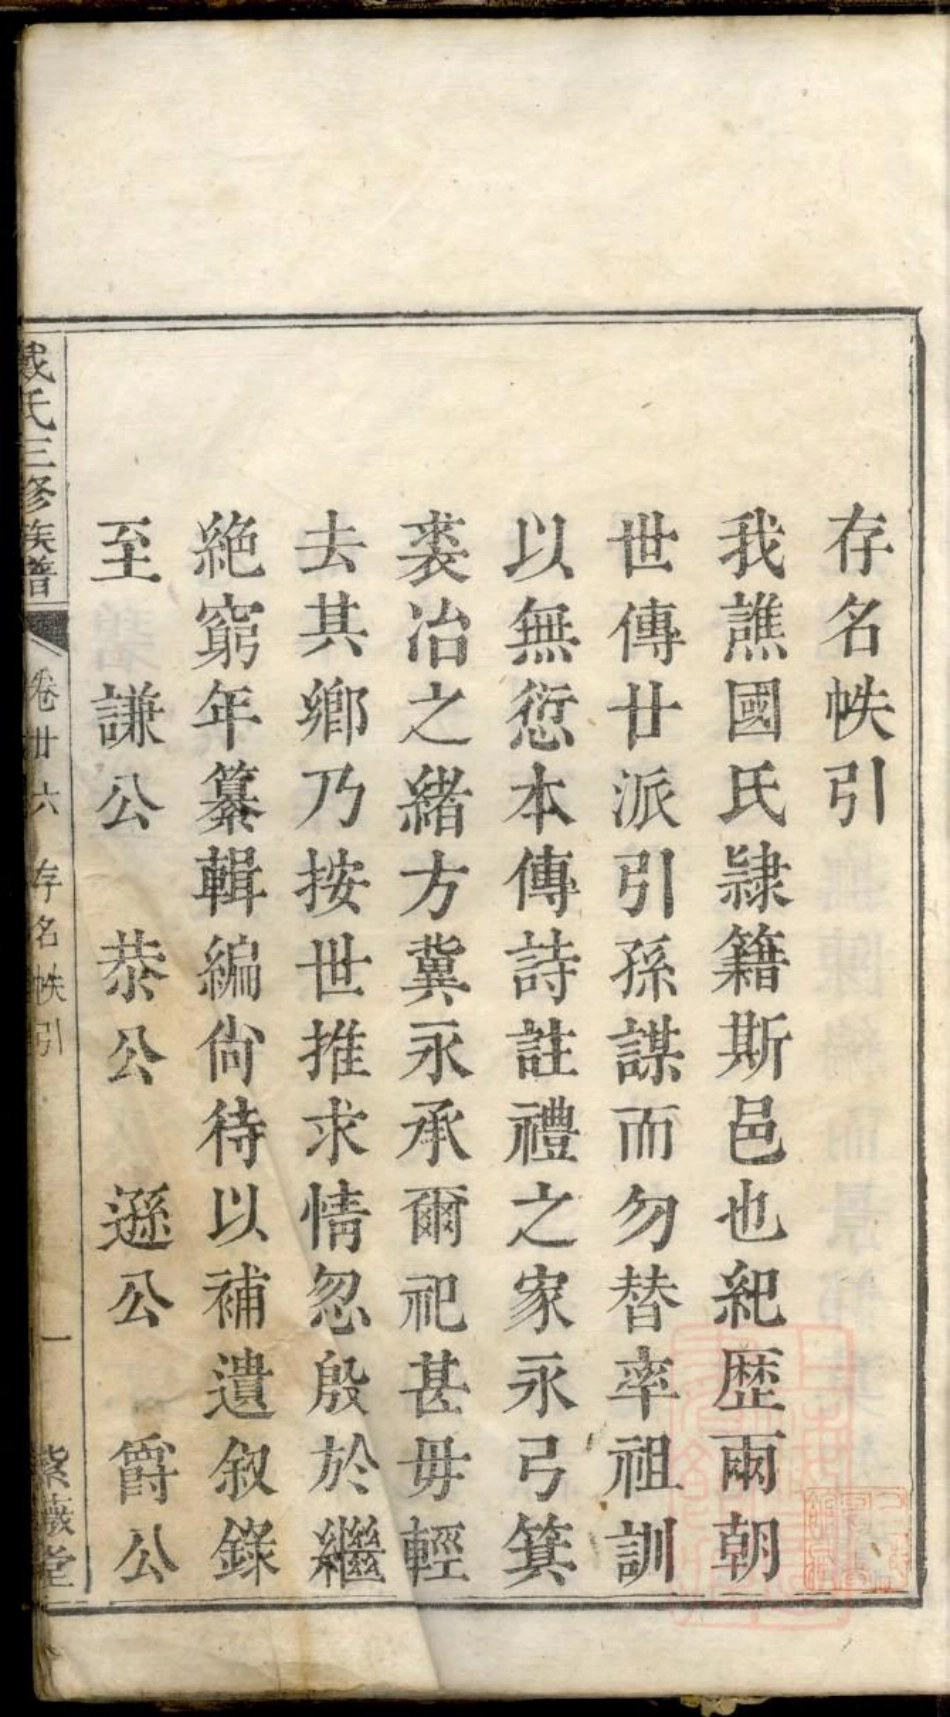 存名帙引
我譙國氏隷籍斯邑也紀歴兩朝
世傳廿派引孫謀而勿替率祖訓
以無愆本傳詩註禮之家永弓箕
裘冶之緒方冀永承爾祀甚毋輕
去其鄉乃按世推求情忽殷於繼
絶窮年纂輯編尙待以補遺叙錄
至 謙公 恭公 遜公 爵公
戴氏三修族譜 卷廿六 存名帙引 一 紫薇堂